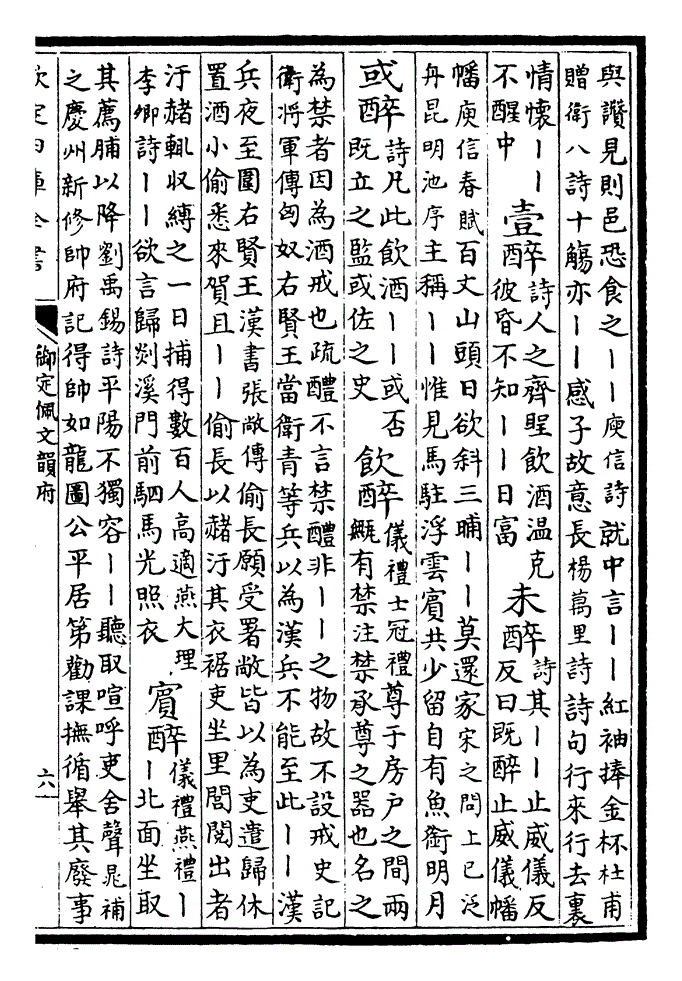 與讚見則邑恐食之——庾信詩就中言——紅袖捧金杯杜甫
贈衛八詩十觴亦——感子故意長楊萬里詩詩句行來行去裏
情懷——
不醒中
壹醉
詩人之齊聖飲酒温克
彼昏不知——日富
未醉
詩其——止威儀反
反曰既醉止威儀幡
幡庾信春賦百丈山頭日欲斜三晡——莫還家宋之問上巳泛
丹昆明池序主稱——惟見馬駐浮雲賓共少留自有魚銜明月
或醉
詩凡此飲酒——或否
既立之監或佐之史
飲醉
儀禮士冠禮尊于房户之間兩
甒有禁注禁承尊之器也名之
為禁者因為酒戒也疏醴不言禁醴非——之物故不設戒史記
衛将軍傳匈奴右賢王當衛青等兵以為漢兵不能至此——漢
兵夜至圍右賢王漢書張敞傳偷長願受署敞皆以為吏遣歸休
置酒小偷悉來賀且——偷長以赭汙其衣裾吏坐里閭閲出者
汙赭輒収縛之一日捕得數百人高適燕大理
李卿詩——欲言歸剡溪門前駟馬光照衣
賓醉
儀禮燕禮—
—北面坐取
其薦脯以降劉禹錫詩平陽不獨容——聽取喧呼吏舍聲晁補
之慶州新修帥府記得帥如龍圖公平居第勸課撫循舉其廢事
欽定四庫全書
御定佩文韻府
六